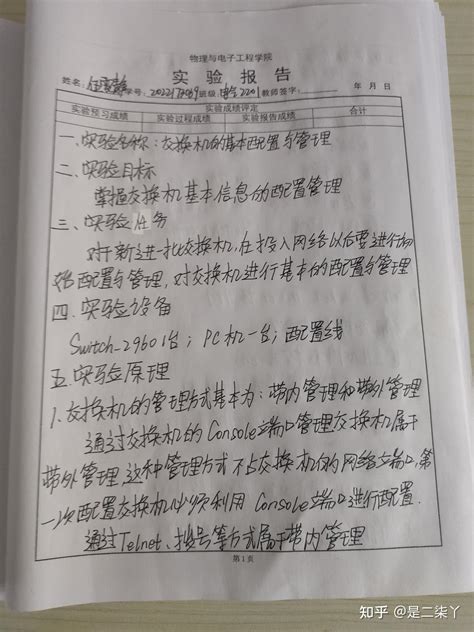 物理与电子工程学院
实验报告
姓名: 学号: 班级: 电气2201 教师签字: 年 月 日
实验预习成绩 实验成绩评定 合计
实验过程成绩 实验报告成绩
一、实验名称:交换机的基本配置与管理
二、实验目标
掌握交换机基本信息的配置管理
三、实验任务
对新进一批交换机,在投入网络以后要进行初
始配置与管理,对交换机进行基本的配置与管理
四、实验设备
Switch_2960 1台;PC机一台;配置线
五、实验原理
1.交换机的管理方式基本为:带内管理和带外管理
通过交换机的Console端口管理交换机属于
带外管理,这种管理方式不占交换机的网络端口,第
一次配置交换机必须利用Console端口进行配置.
通过Telnet、拨号等方式属于带内管理
第1页
知乎 @是二柒丫